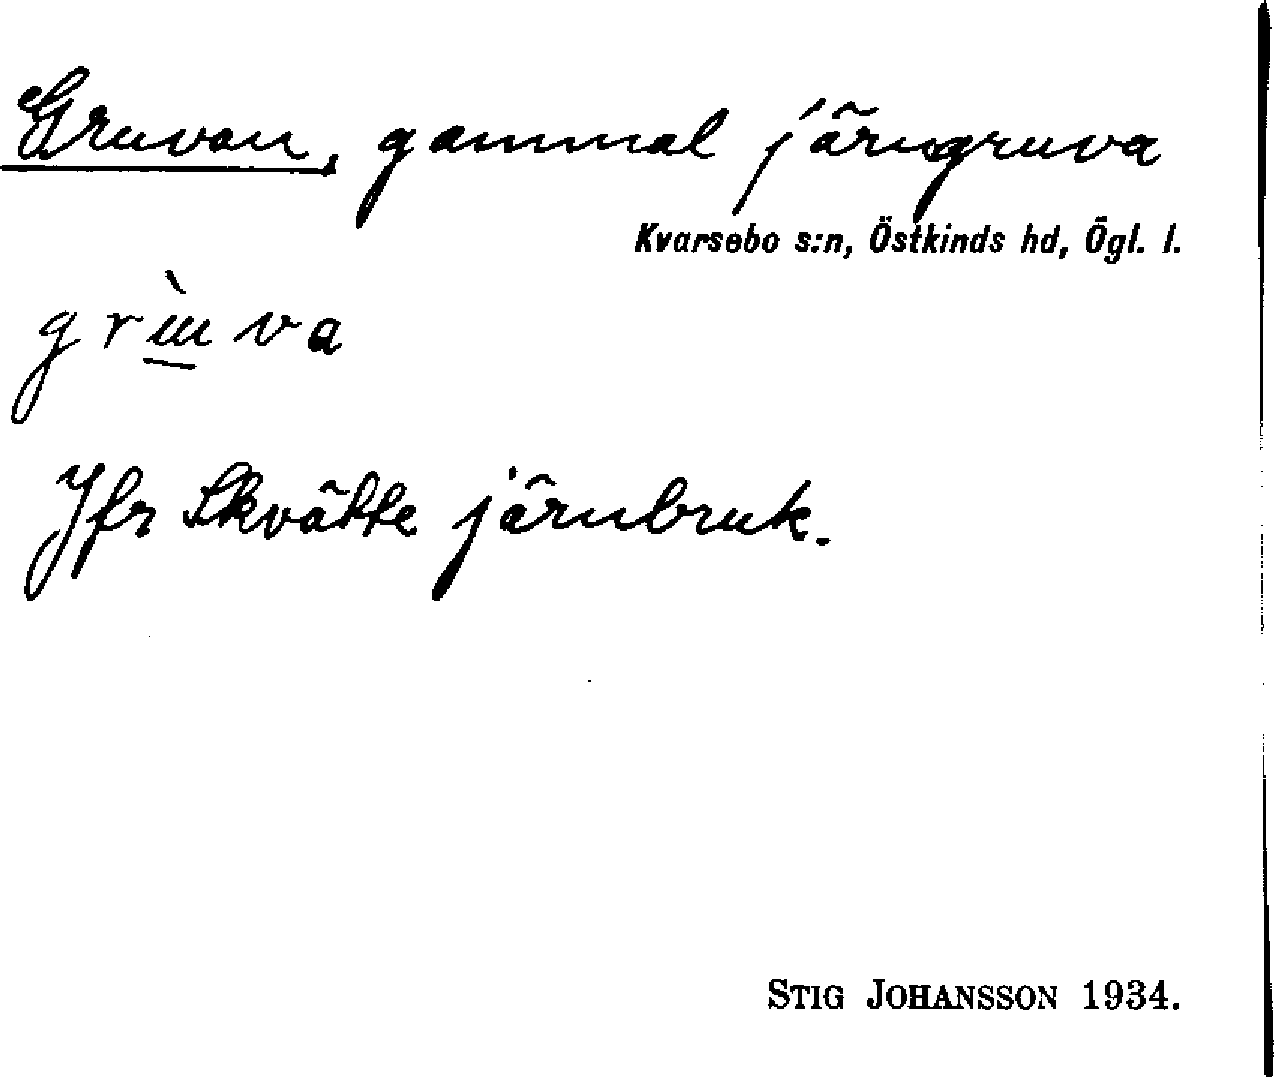 Gruvan, gammal järngruva
Kvarsebo s:n, Östkinds hd, Ögl. l.
grùva
Jfr Skvätte järnbruk.
STIG JOHANSSON 1934.